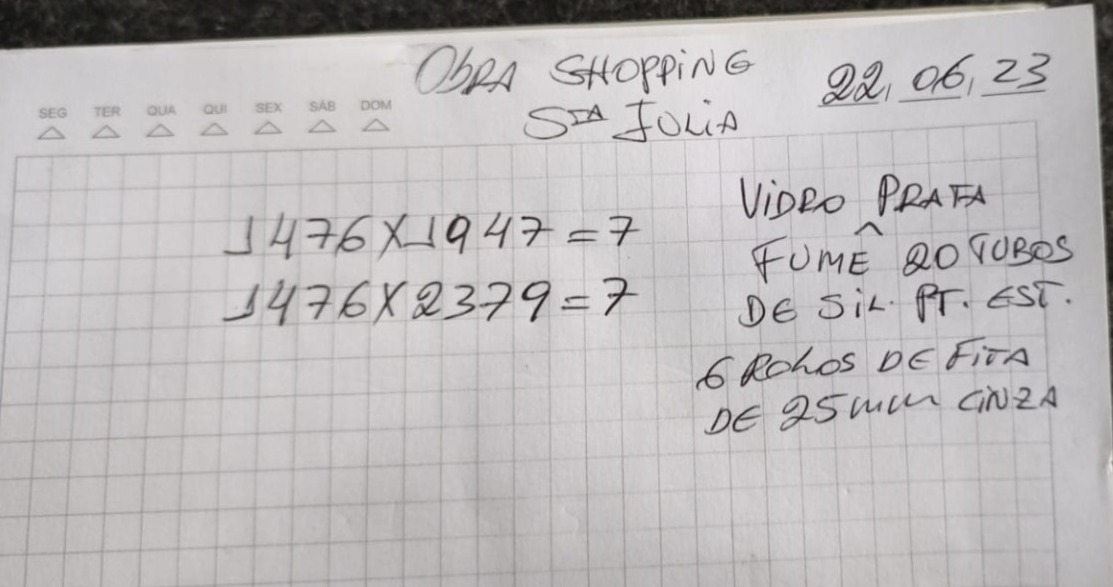 OBRA SHOPPING
STA JULIA
22, 06, 23
SEG TER QUA QUI SEX SÁB DOM
1476X1947=7
1476X2379=7
VIDRO PRATA
FUMÊ 20 TUBOS
DE SIL. PT. EST.
6 ROLOS DE FITA
DE 25mm CINZA